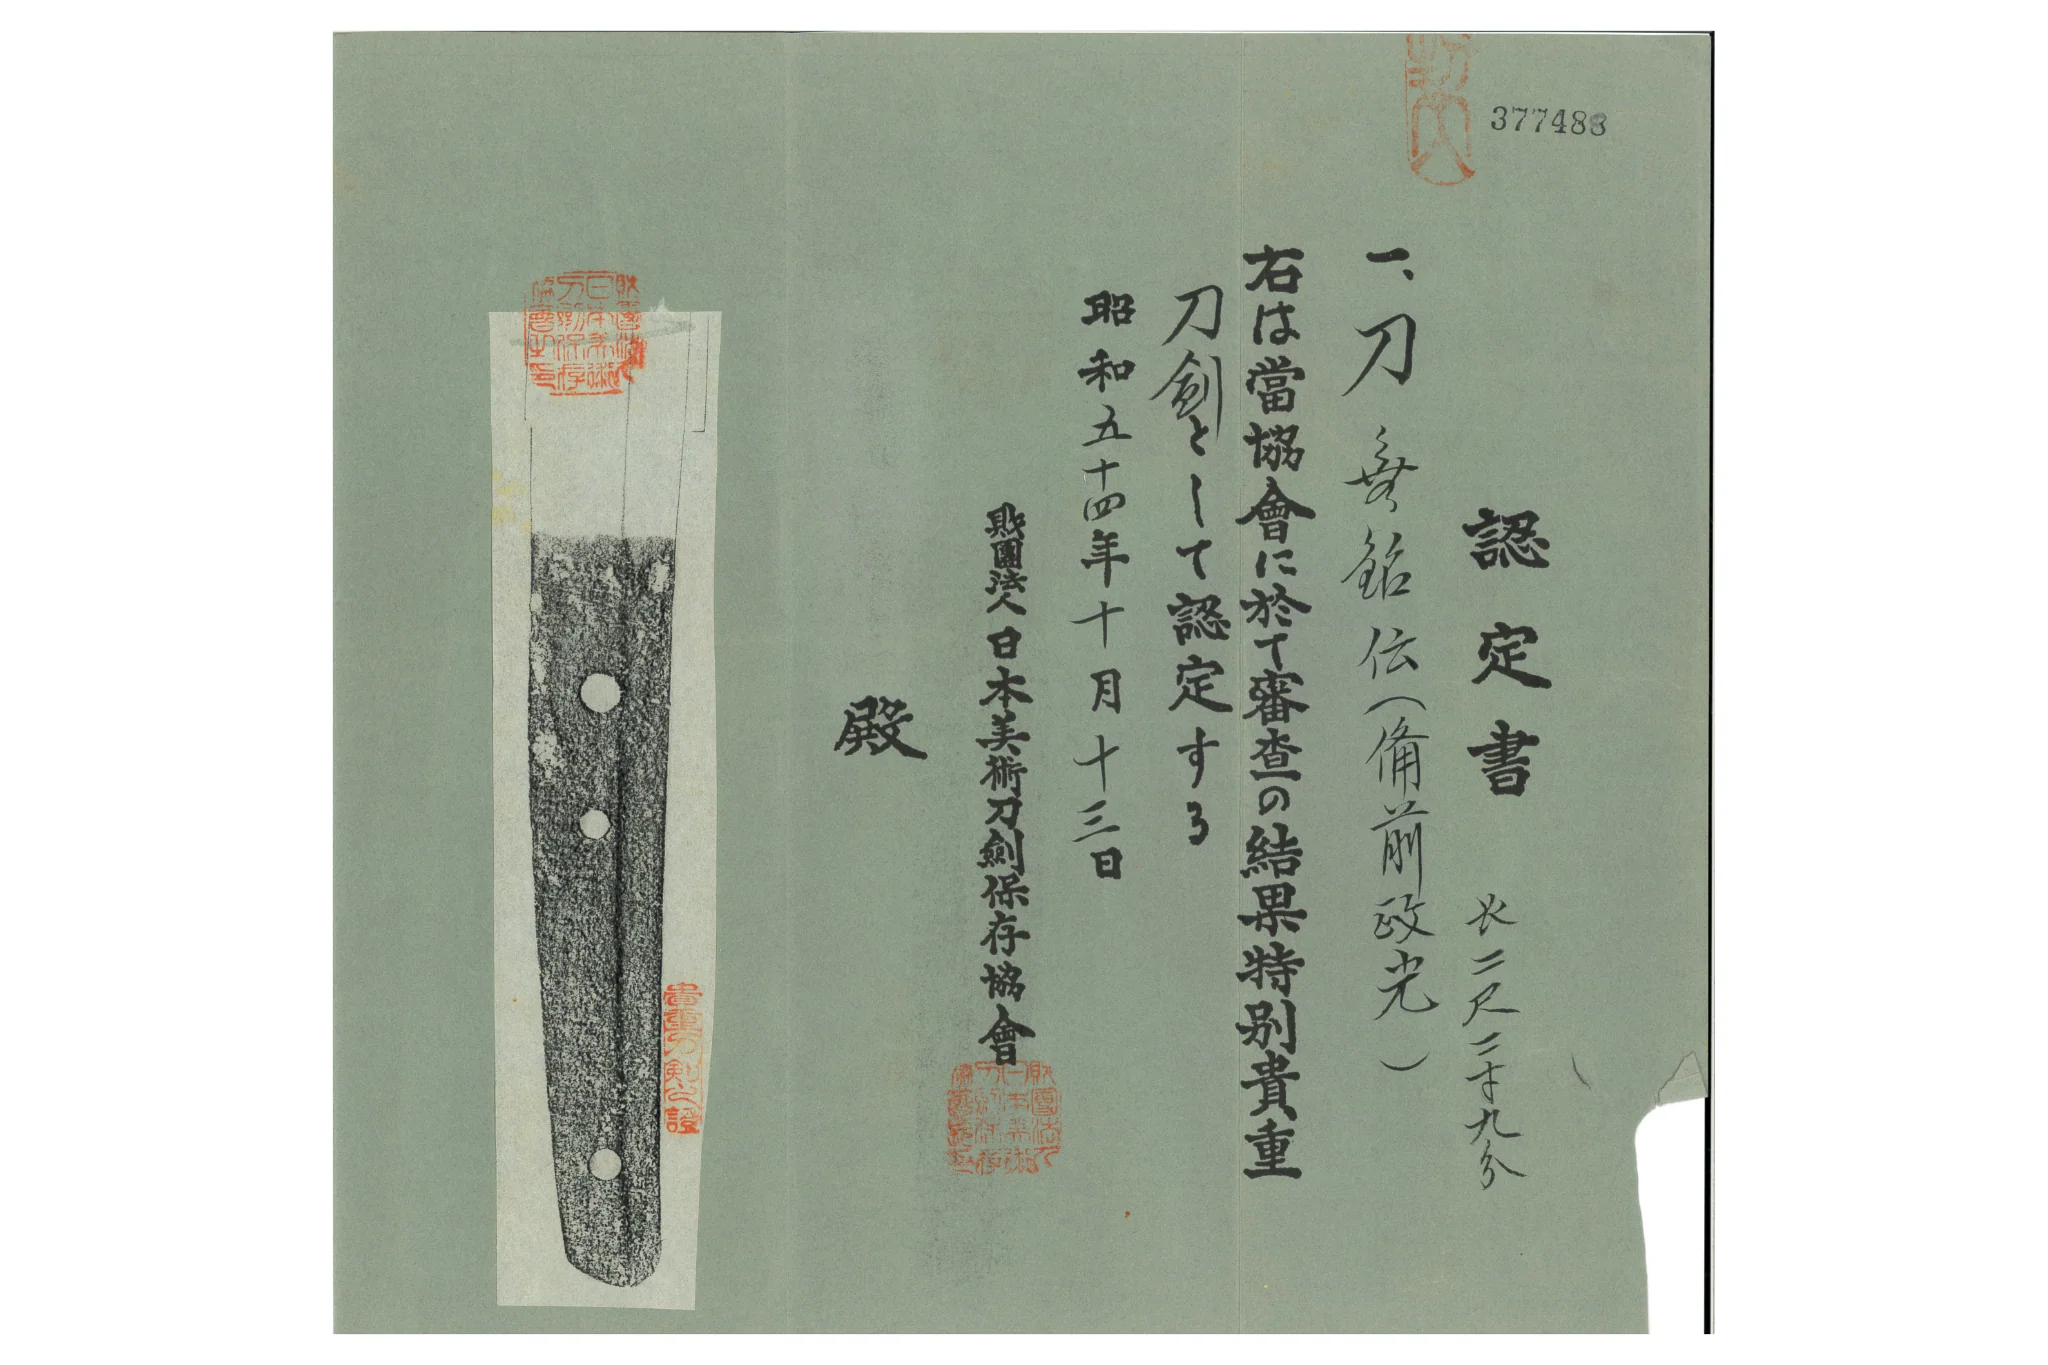 377488
認定書
長二尺二寸九分
一、刀 無銘 伝(備前政光)
右は當協會に於て審査の結果特別貴重
刀劍として認定する
昭和五十四年十月十三日
財團法人日本美術刀劍保存協會
殿
財團法人日本美術刀剣保存協會之印
貴重刀剣之證